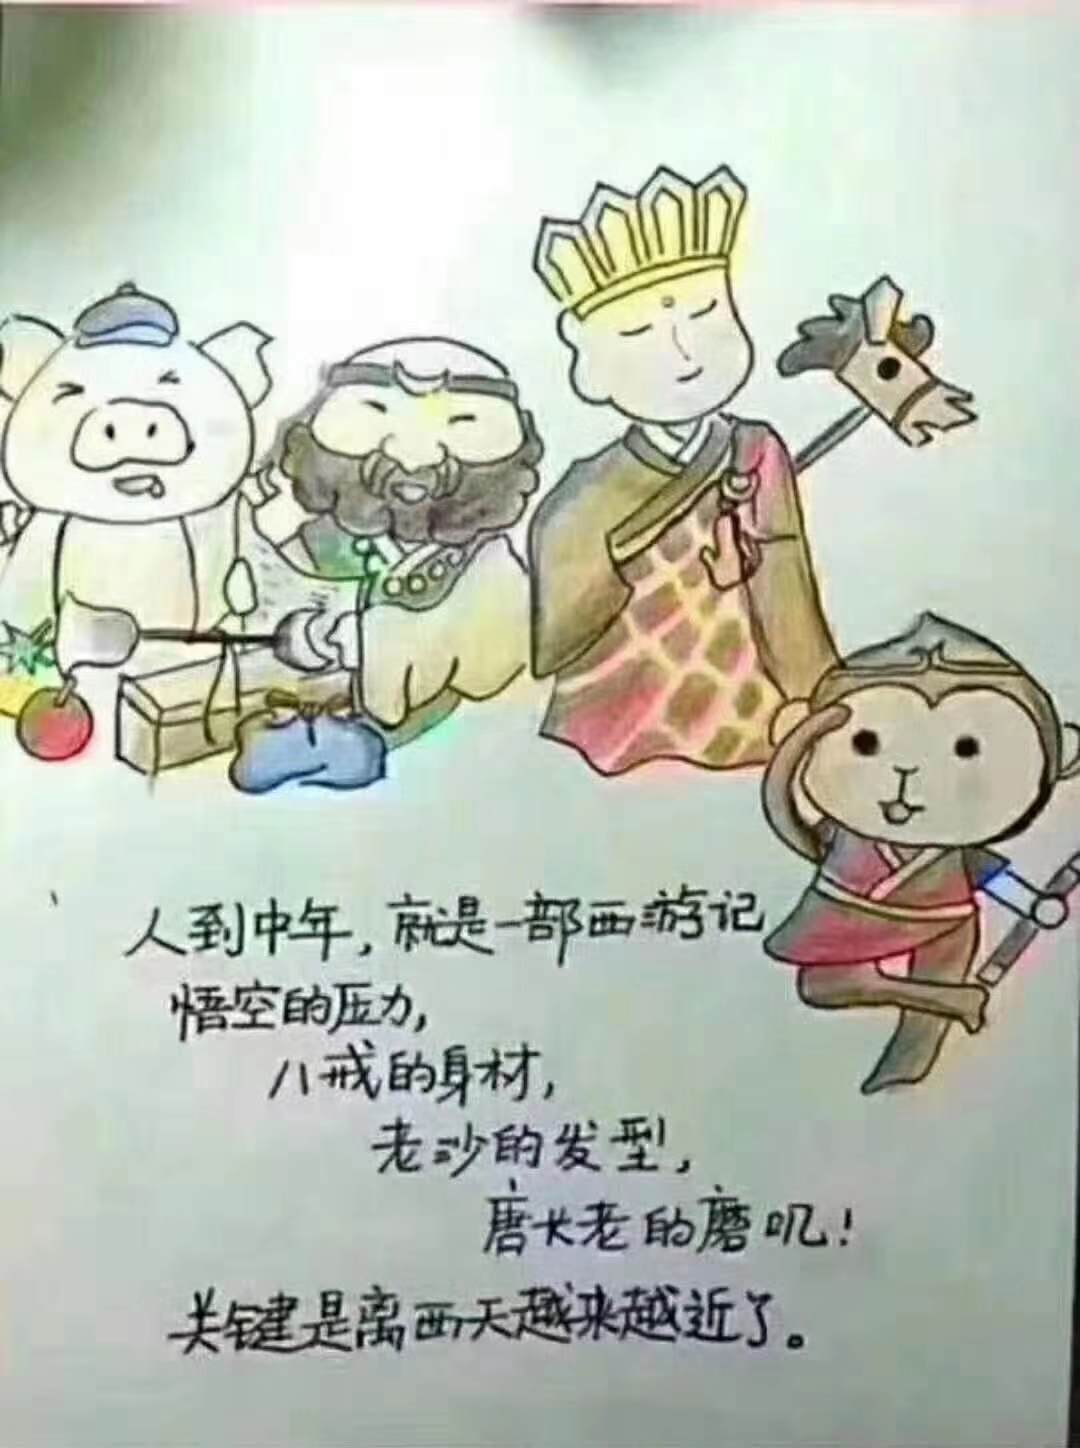 人到中年,就是一部西游记
悟空的压力,
八戒的身材,
老沙的发型,
唐长老的磨叽!
关键是离西天越来越近了。